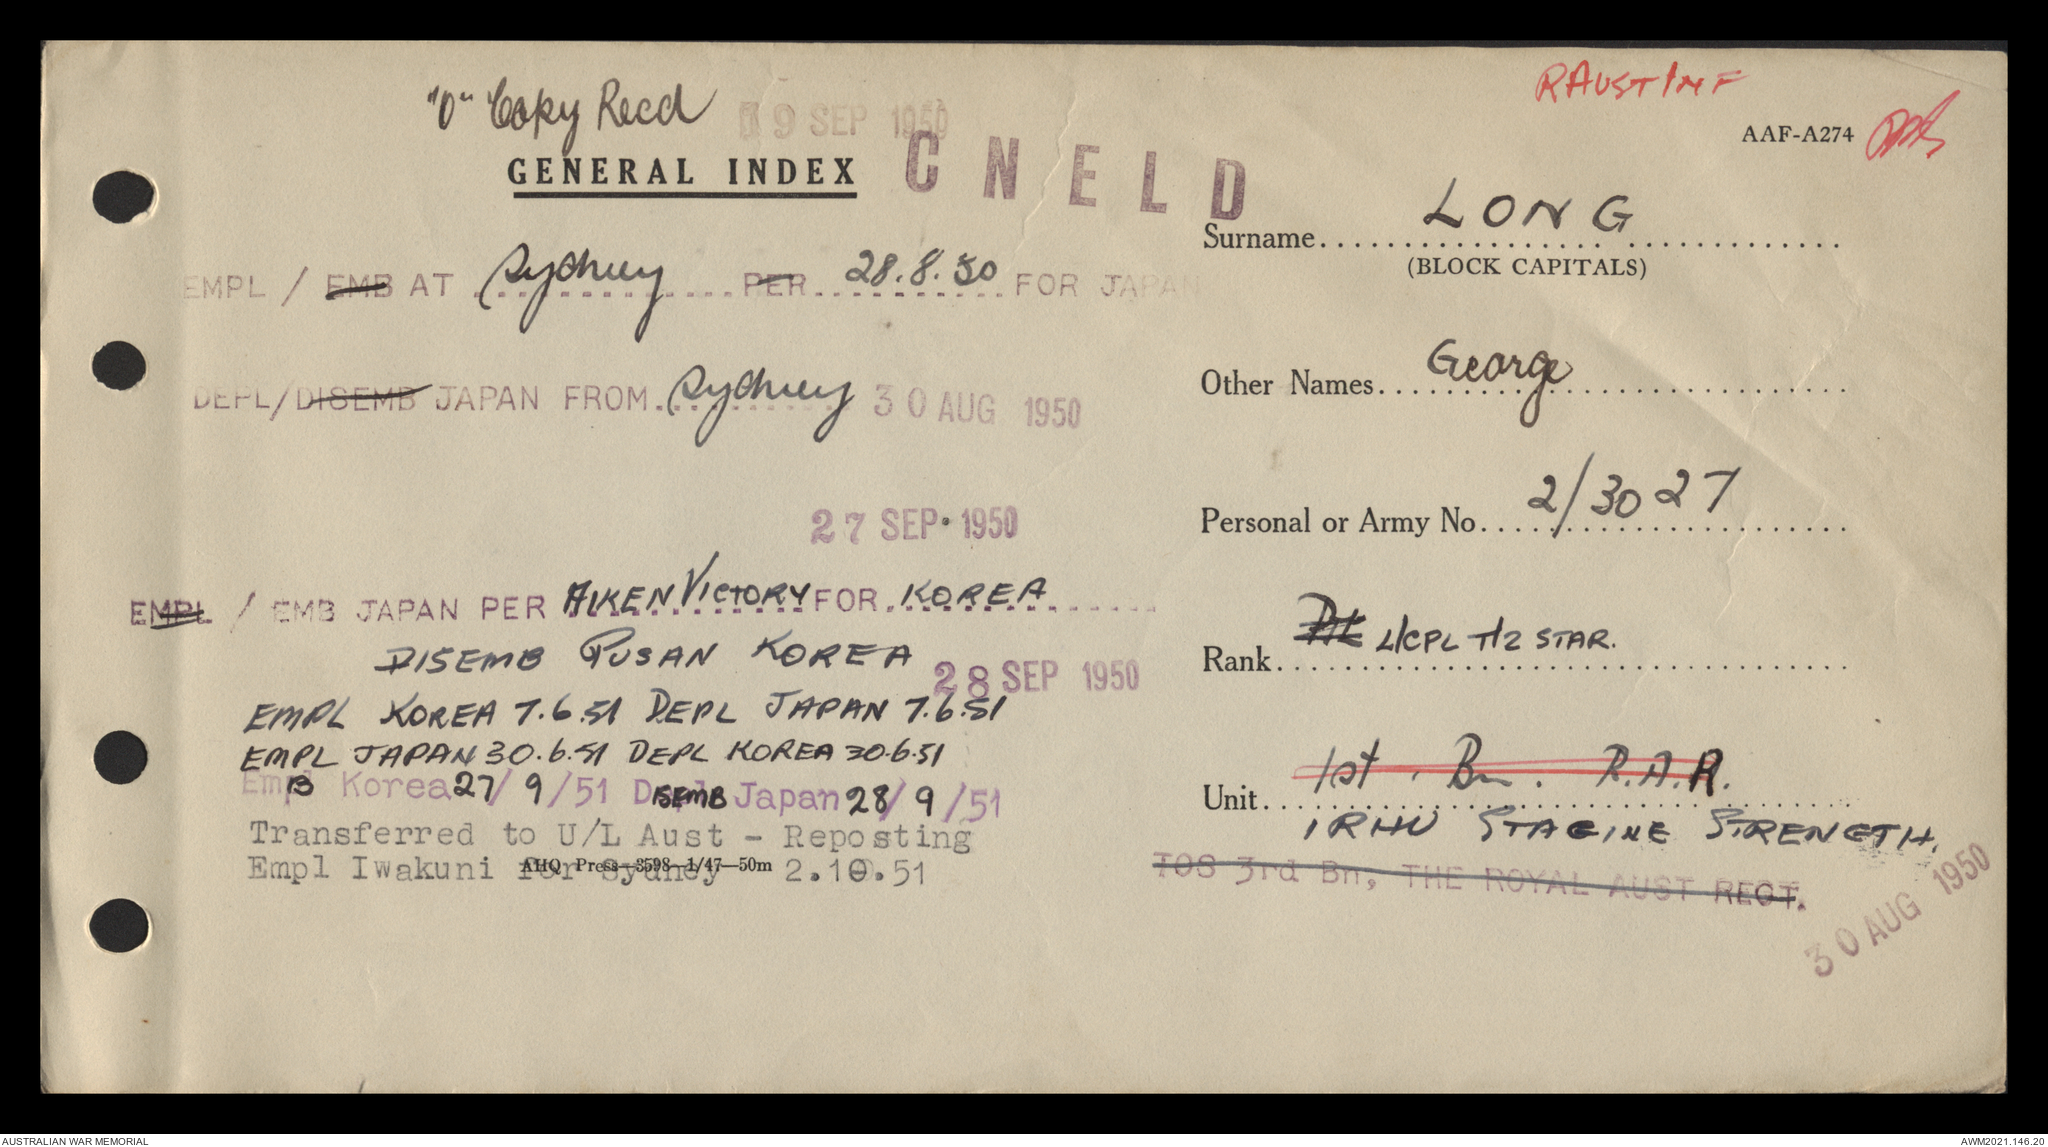 "O" Copy Recd 19 SEP 1950
GENERAL INDEX
CNELD
EMPL / EMB AT Sydney PER 28.8.50 FOR JAPAN
DEPL/DISEMB JAPAN FROM Sydney 30 AUG 1950
27 SEP 1950
EMPL / EMB JAPAN PER AIKEN VICTORY FOR KOREA
DISEMB PUSAN KOREA 28 SEP 1950
EMPL KOREA 7.6.51 DEPL JAPAN 7.6.51
EMPL JAPAN 30.6.51 DEPL KOREA 30.6.51
EmB Korea 27/9/51 DISEMB Japan 28/9/51
Transferred to U/L Aust - Reposting
Empl Iwakuni for Sydney 2.10.51
AHQ Press—3598—1/47—50m
R AUST INF
AAF-A274
Surname LONG
(BLOCK CAPITALS)
Other Names George
Personal or Army No. 2/3027
Rank Pte L/CPL T/2 STAR.
Unit 1st. Bn. R.A.R.
1 RHU STAGINE STRENGTH.
TOS 3rd Bn, THE ROYAL AUST REGT.
30 AUG 1950
AUSTRALIAN WAR MEMORIAL
AWM2021.146.20